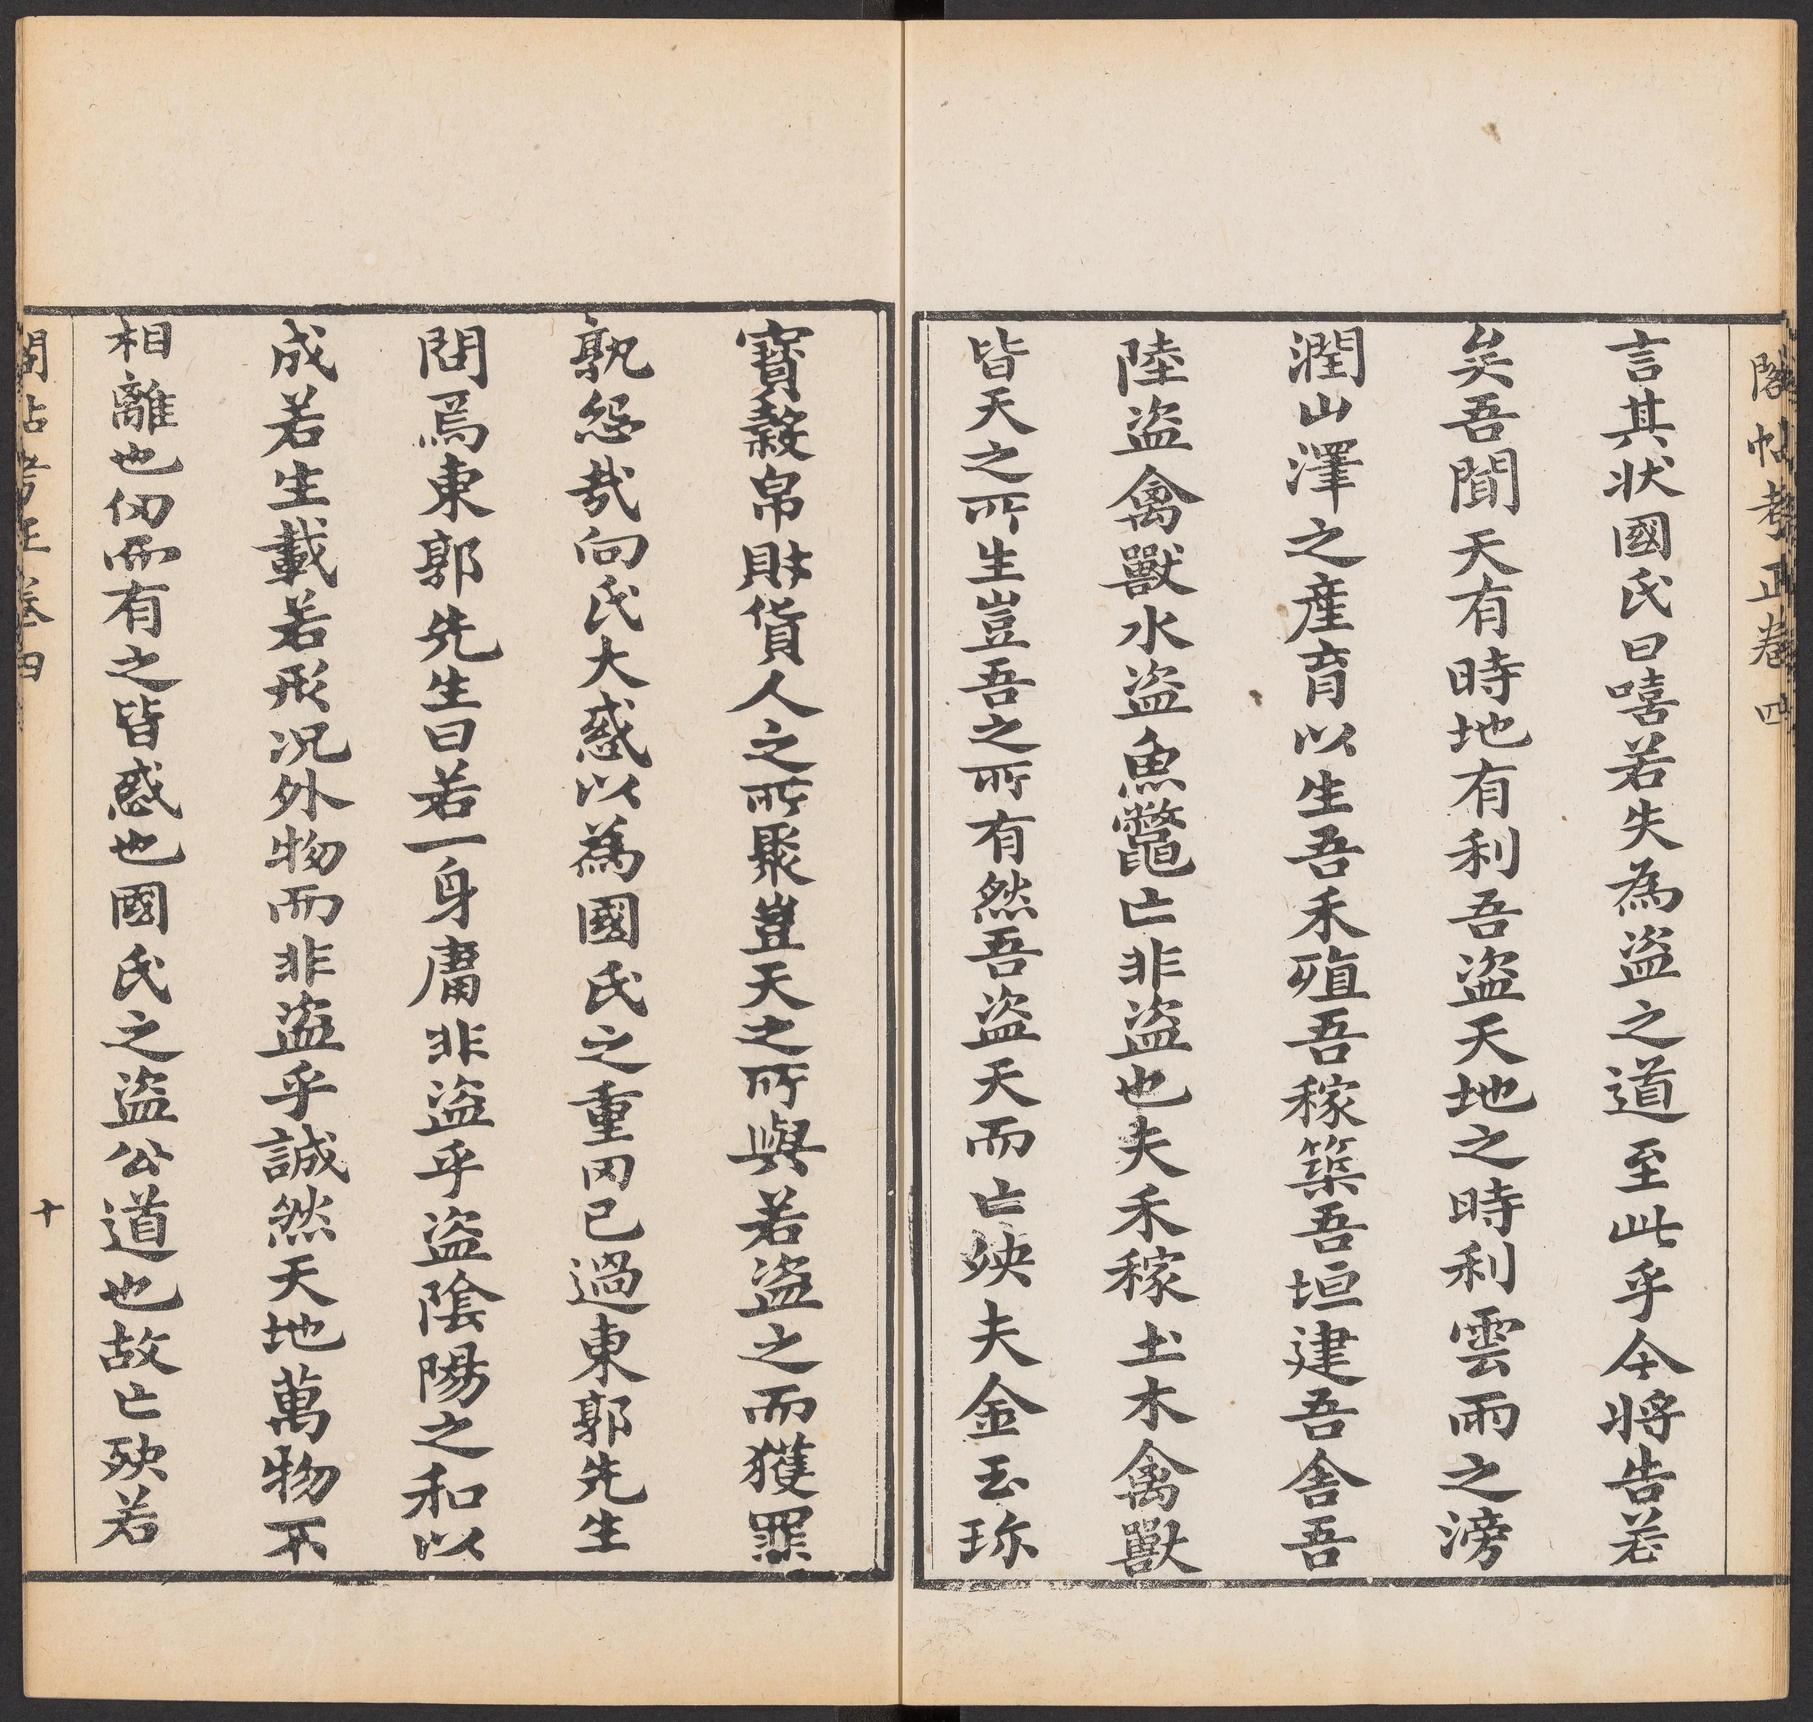 閣帖考正卷四
言其状國氏曰嘻若失為盗之道至此乎今将告若
矣吾聞天有時地有利吾盗天地之時利雲雨之滂
潤山澤之產育以生吾禾殖吾稼築吾垣建吾舎吾
陸盗禽獸水盗魚鼈亡非盗也夫禾稼土木禽獸
皆天之所生豈吾之所有然吾盗天而亡殃夫金玉珎
寶穀帛財貨人之所聚豈天之所與若盗之而獲罪
孰怨㢤向氏大惑以為國氏之重罔已過東郭先生
問焉東郭先生曰若一身庸非盗乎盗陰陽之和以
成若生載若形况外物而非盗乎誠然天地萬物不
相離也仞而有之皆惑也國氏之盗公道也故亡殃若
閣帖考正卷四
十